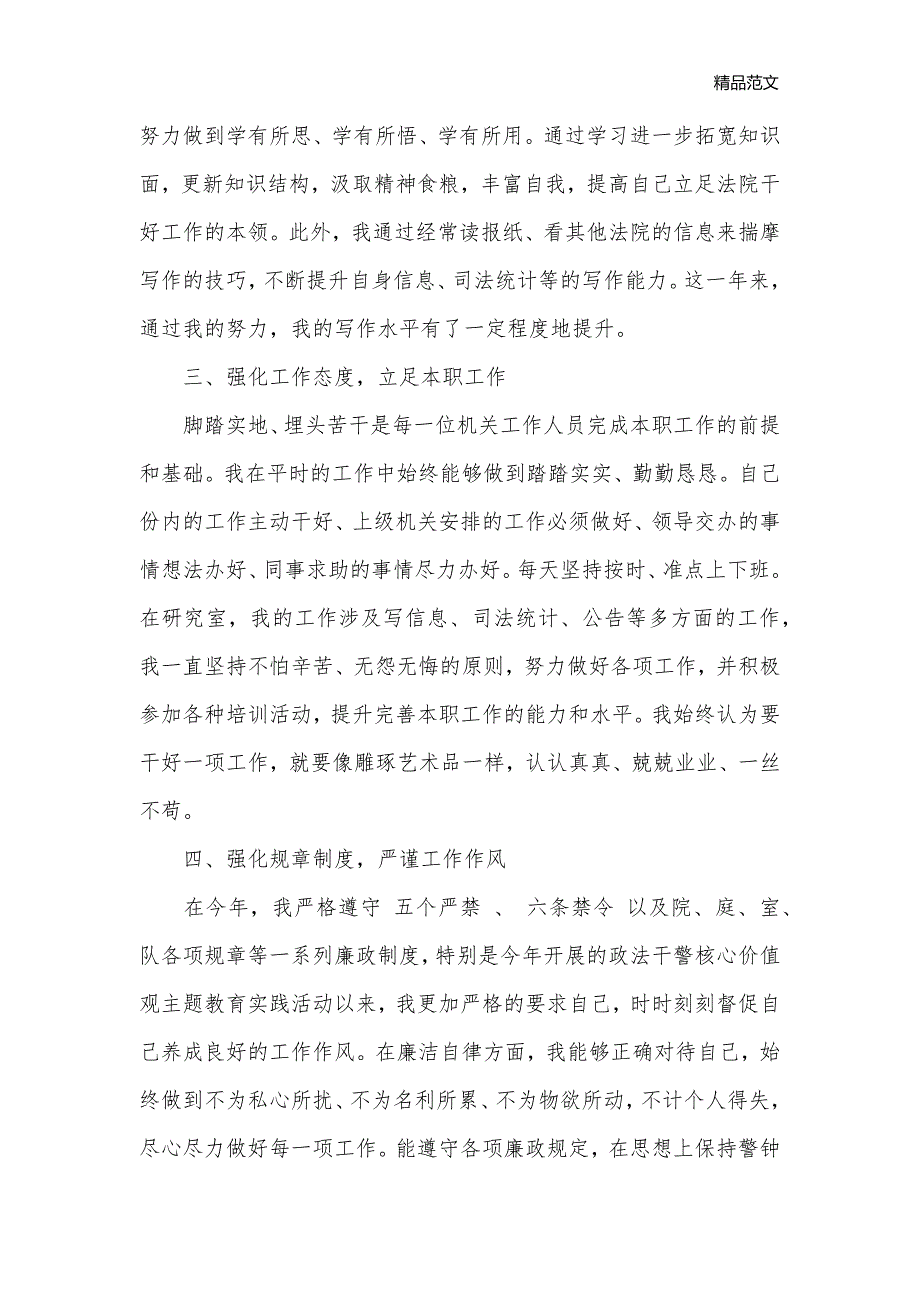 精品范文
努力做到学有所思、学有所悟、学有所用。通过学习进一步拓宽知识
面，更新知识结构，汲取精神食粮，丰富自我，提高自己立足法院干
好工作的本领。此外，我通过经常读报纸、看其他法院的信息来揣摩
写作的技巧，不断提升自身信息、司法统计等的写作能力。这一年来，
通过我的努力，我的写作水平有了一定程度地提升。
三、强化工作态度，立足本职工作
脚踏实地、埋头苦干是每一位机关工作人员完成本职工作的前提
和基础。我在平时的工作中始终能够做到踏踏实实、勤勤恳恳。自己
份内的工作主动干好、上级机关安排的工作必须做好、领导交办的事
情想法办好、同事求助的事情尽力办好。每天坚持按时、准点上下班。
在研究室，我的工作涉及写信息、司法统计、公告等多方面的工作，
我一直坚持不怕辛苦、无怨无悔的原则，努力做好各项工作，并积极
参加各种培训活动，提升完善本职工作的能力和水平。我始终认为要
干好一项工作，就要像雕琢艺术品一样，认认真真、兢兢业业、一丝
不苟。
四、强化规章制度，严谨工作作风
在今年，我严格遵守 五个严禁 、 六条禁令 以及院、庭、室、
队各项规章等一系列廉政制度，特别是今年开展的政法干警核心价值
观主题教育实践活动以来，我更加严格的要求自己，时时刻刻督促自
己养成良好的工作作风。在廉洁自律方面，我能够正确对待自己，始
终做到不为私心所扰、不为名利所累、不为物欲所动，不计个人得失，
尽心尽力做好每一项工作。能遵守各项廉政规定，在思想上保持警钟